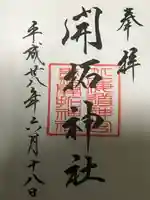 奉拝
開拓神社
平成廿八年六月十八日